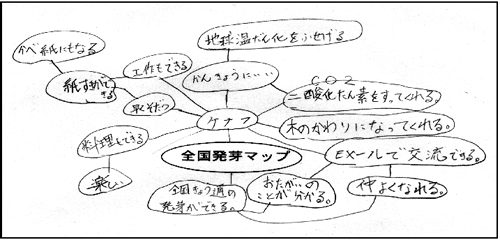 地球温だん化をふせげる
かべ紙にもなる
工作もできる
かんきょうにいい
紙すきができる
CO2
二酸化たん素をすってくれる。
早くそだつ
ケナフ
木のかわりになってくれる。
料理もできる
全国発芽マップ
EメールでX交流できる。
楽しい
全国きょう通の
発芽ができる。
おたがいの
ことが分かる。
仲よくなれる。